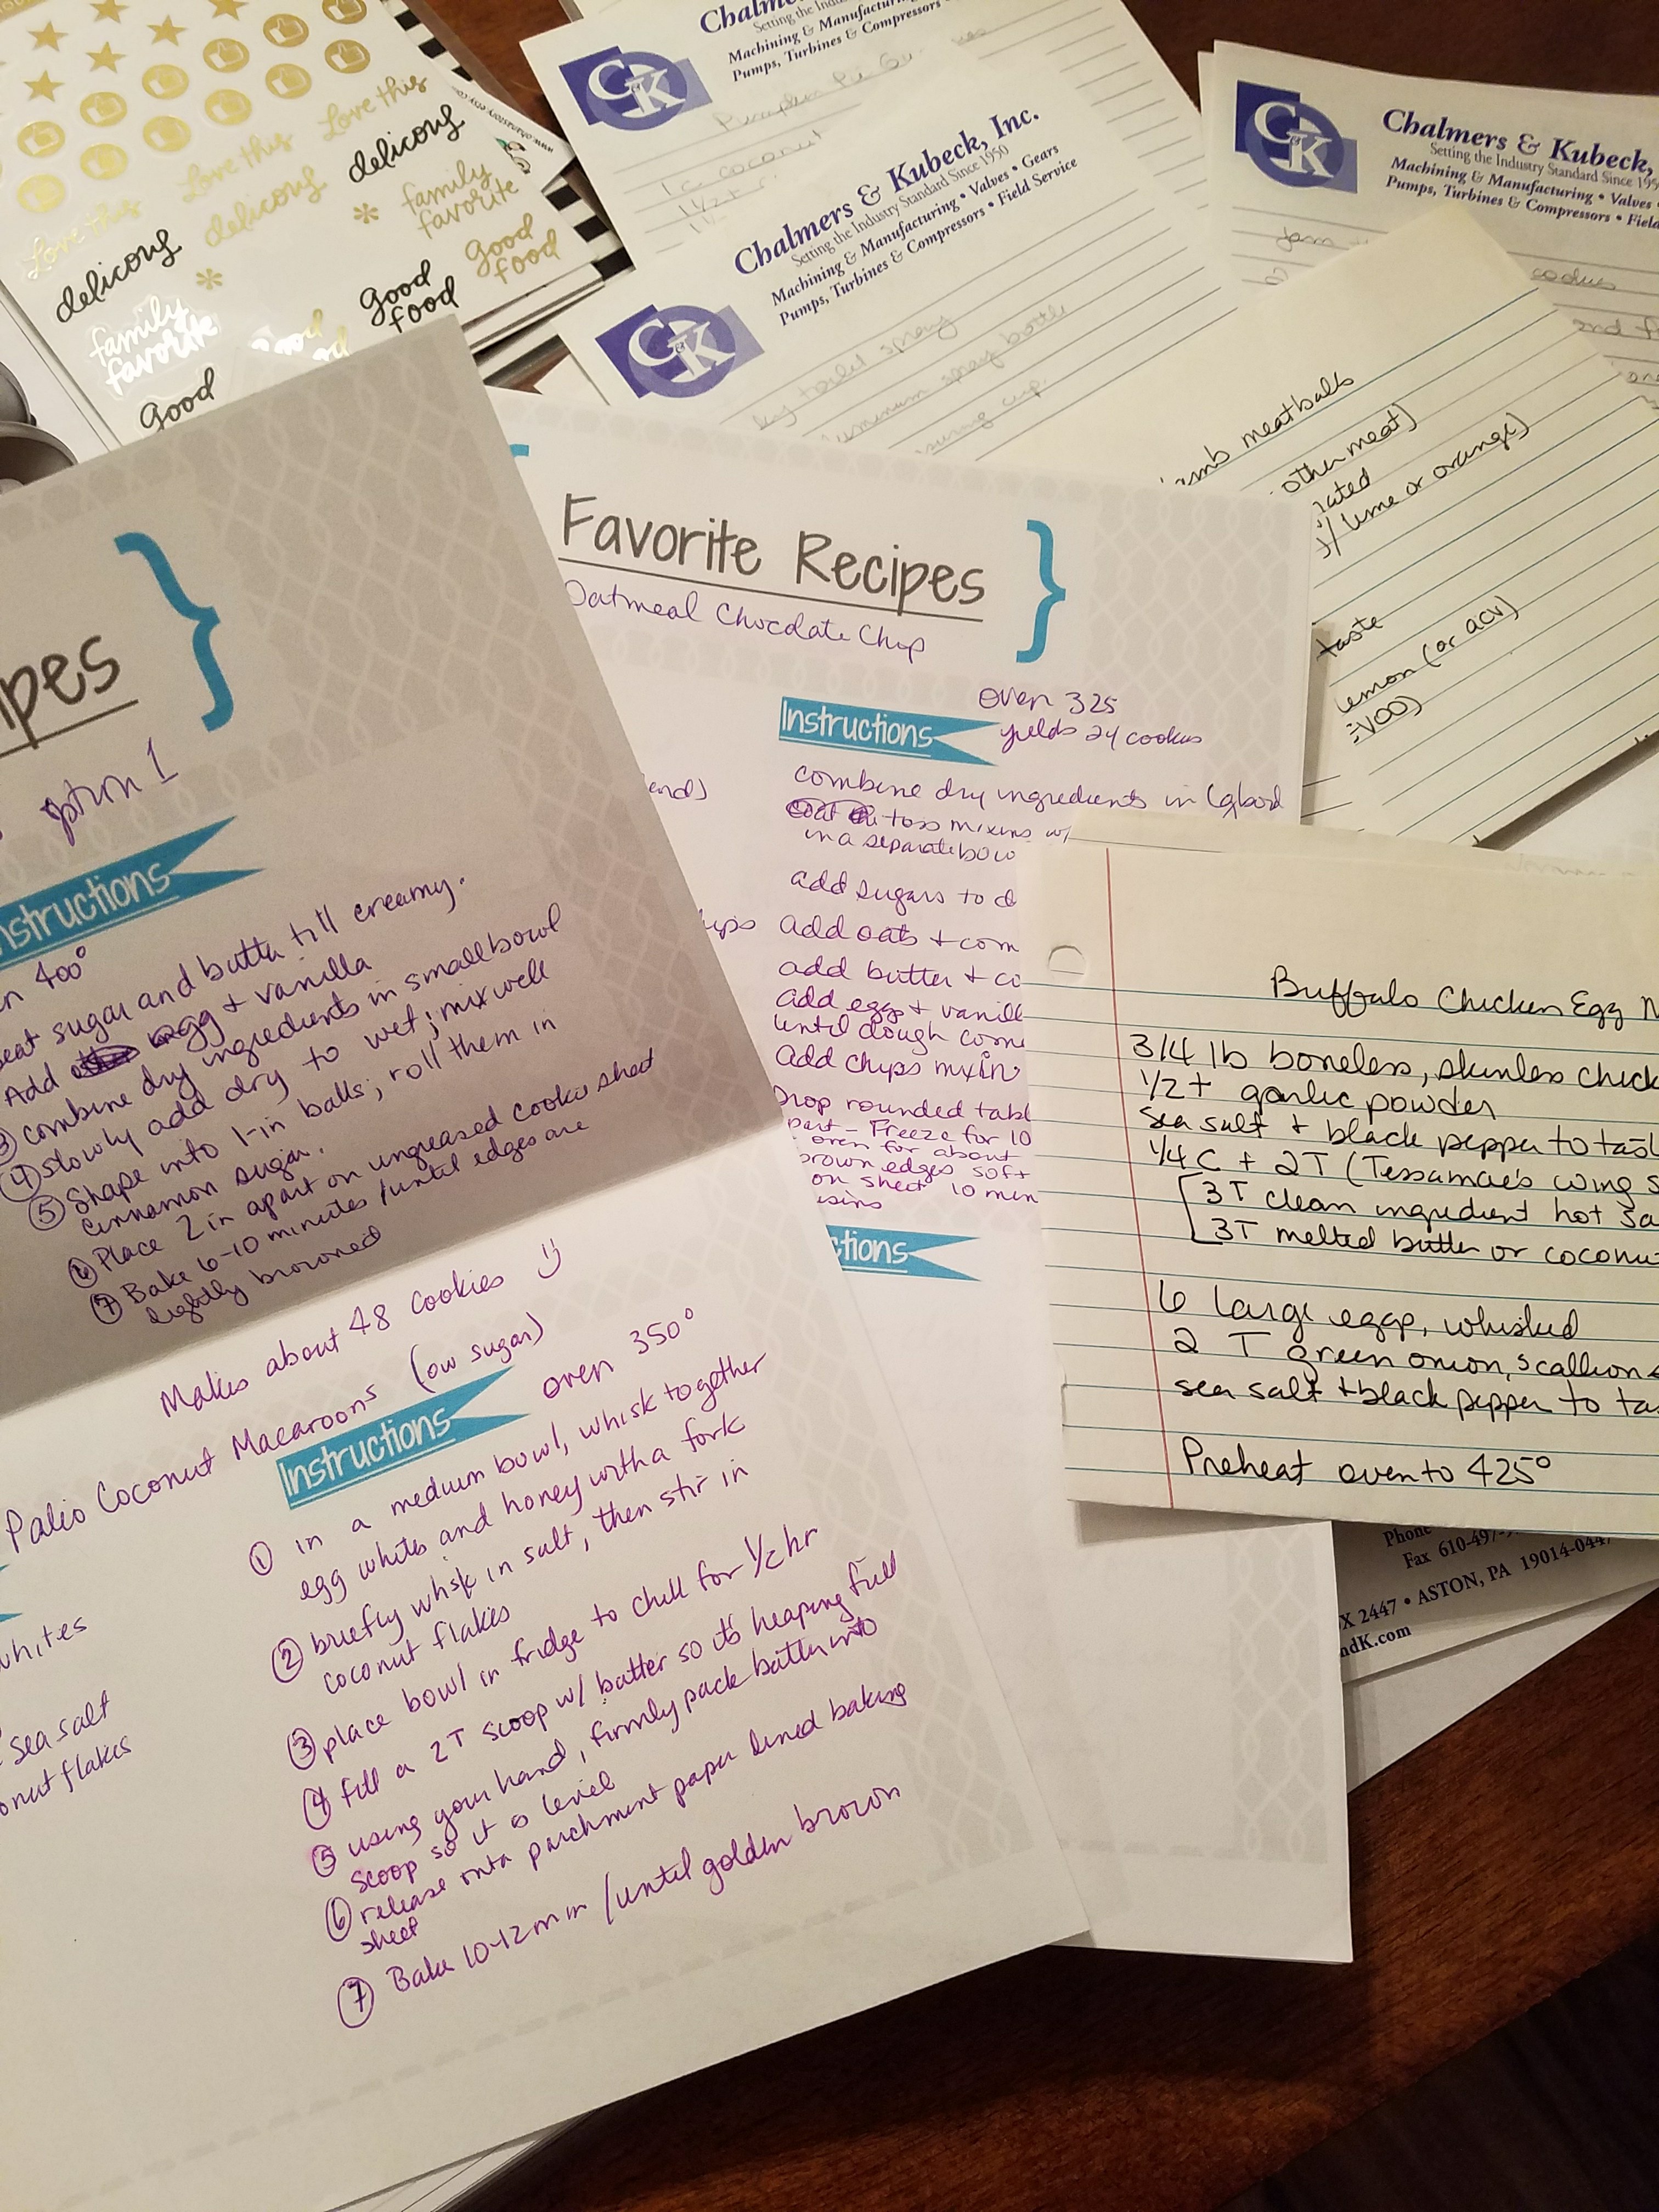 Love this
Love this
delicous
Love this
delicous
family
favorite
delicous
good
food
good
food
family
favorite
good
www.ohmystory.etsy.com
Setting the Indu
Machining & Manufacturing
Pumps, Turbines & Compressors
C&K
Pumpkin Pie
1 c. coconut
Chalmers & Kubeck, Inc.
Setting the Industry Standard Since 1950
Machining & Manufacturing • Valves • Gears
Pumps, Turbines & Compressors • Field Service
C&K
toilet spray
spray bottle
cup.
C&K
Chalmers & Kubeck,
Setting the Industry Standard Since 195
Machining & Manufacturing • Valves •
Pumps, Turbines & Compressors • Field
Jam
cookies
and
meatballs
other meat)
/ lime or orange)
taste
lemon (or acv)
EVOO)
ipes
option 1
Instructions
400°
beat sugar and butter till creamy.
Add egg + vanilla
③ combine dry ingredients in small bowl
④ slowly add dry to wet; mix well
⑤ Shape into 1-in balls; roll them in
cinnamon sugar.
⑥ Place 2 in apart on ungreased cookie sheet
⑦ Bake 6-10 minutes / until edges are
lightly browned
Makes about 48 cookies
Favorite Recipes
Oatmeal Chocolate Chip
oven 325
Instructions
yields 24 cookies
combine dry ingredients in lg bowl
toss mixins w/
in a separate bow
add sugars to d
chips
add oats + com
add butter + co
add egg + vanill
until dough come
add chips mixin
Drop rounded tabl
part - Freeze for 10
oven for about
brown edges soft
on sheet 10 min
Instructions
Paleo Coconut Macaroons (low sugar)
Instructions
oven 350°
① in a medium bowl, whisk together
egg whites and honey with a fork
② briefly whisk in salt, then stir in
coconut flakes
③ place bowl in fridge to chill for 1/2 hr
④ fill a 2 T scoop w/ batter so its heaping full
⑤ using your hand, firmly pack batter into
scoop so it is level
⑥ release onto parchment paper lined baking
sheet
⑦ Bake 10-12 min / until golden brown
whites
sea salt
onut flakes
Buffalo Chicken Egg M
3/4 lb boneless, skinless chick
1/2 t garlic powder
sea salt + black pepper to tast
1/4 C + 2T (Tessamae's wing s
3T clean ingredient hot sa
3T melted butter or coconu
6 large eggs, whisked
2 T green onion, scallions
sea salt + black pepper to ta
Preheat oven to 425°
Phone
Fax 610-497-
X 2447 • ASTON, PA 19014-0447
ndK.com